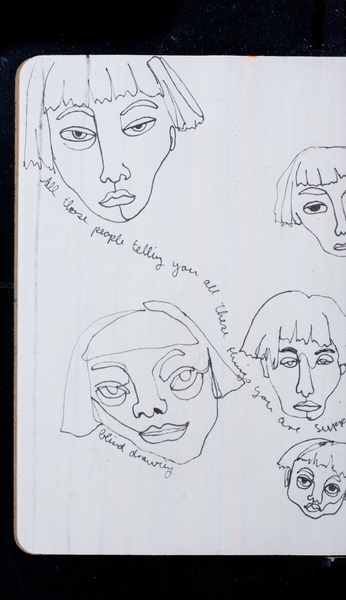 All those people telling you all these things you are suppo
blind drawing